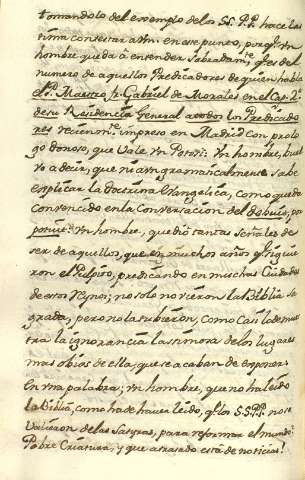 tomandolo del exemplo de los SS. PP. hace las
tima contestar a Vm en este punto, porq.e Vn
hombre que da á entender Sabrabam; q.e es del
numero de aquellos Predicadores de quien habla
el P. Maestro fr. Gabriel de Morales en el Cap.
de su Residencia General a todos los Predicado
res recien impreso en Madrid con prolo
go donoso, que Vale Vn Potosi: Vn hombre, buel
vo a decir, que ni aun gramaticalmente sabe
explicar la doctrina Evangelica, como queda
convencido en la Conversacion del
Vn hombre, que dió tantas Señales de
ser de aquellos, que en muchos años q.e siguie
ron el Pulpito, predicando en muchas Ciudades
de estos Reynos; no solo no vieron la Biblia Sa
grada, pero no la tubieron, como Casilo demues
tra la ignorancia lastimosa de los lugares
mas obios de ella, que se acaban de exponer.
En Vna palabra; Vn hombre, que no ha leido
la Biblia, como ha de haver leido, q.e los SS. PP. no se
Valieron de las Satyras, para reformar el mundo?
Pobre Criatura, y que atrasado está de noticias!